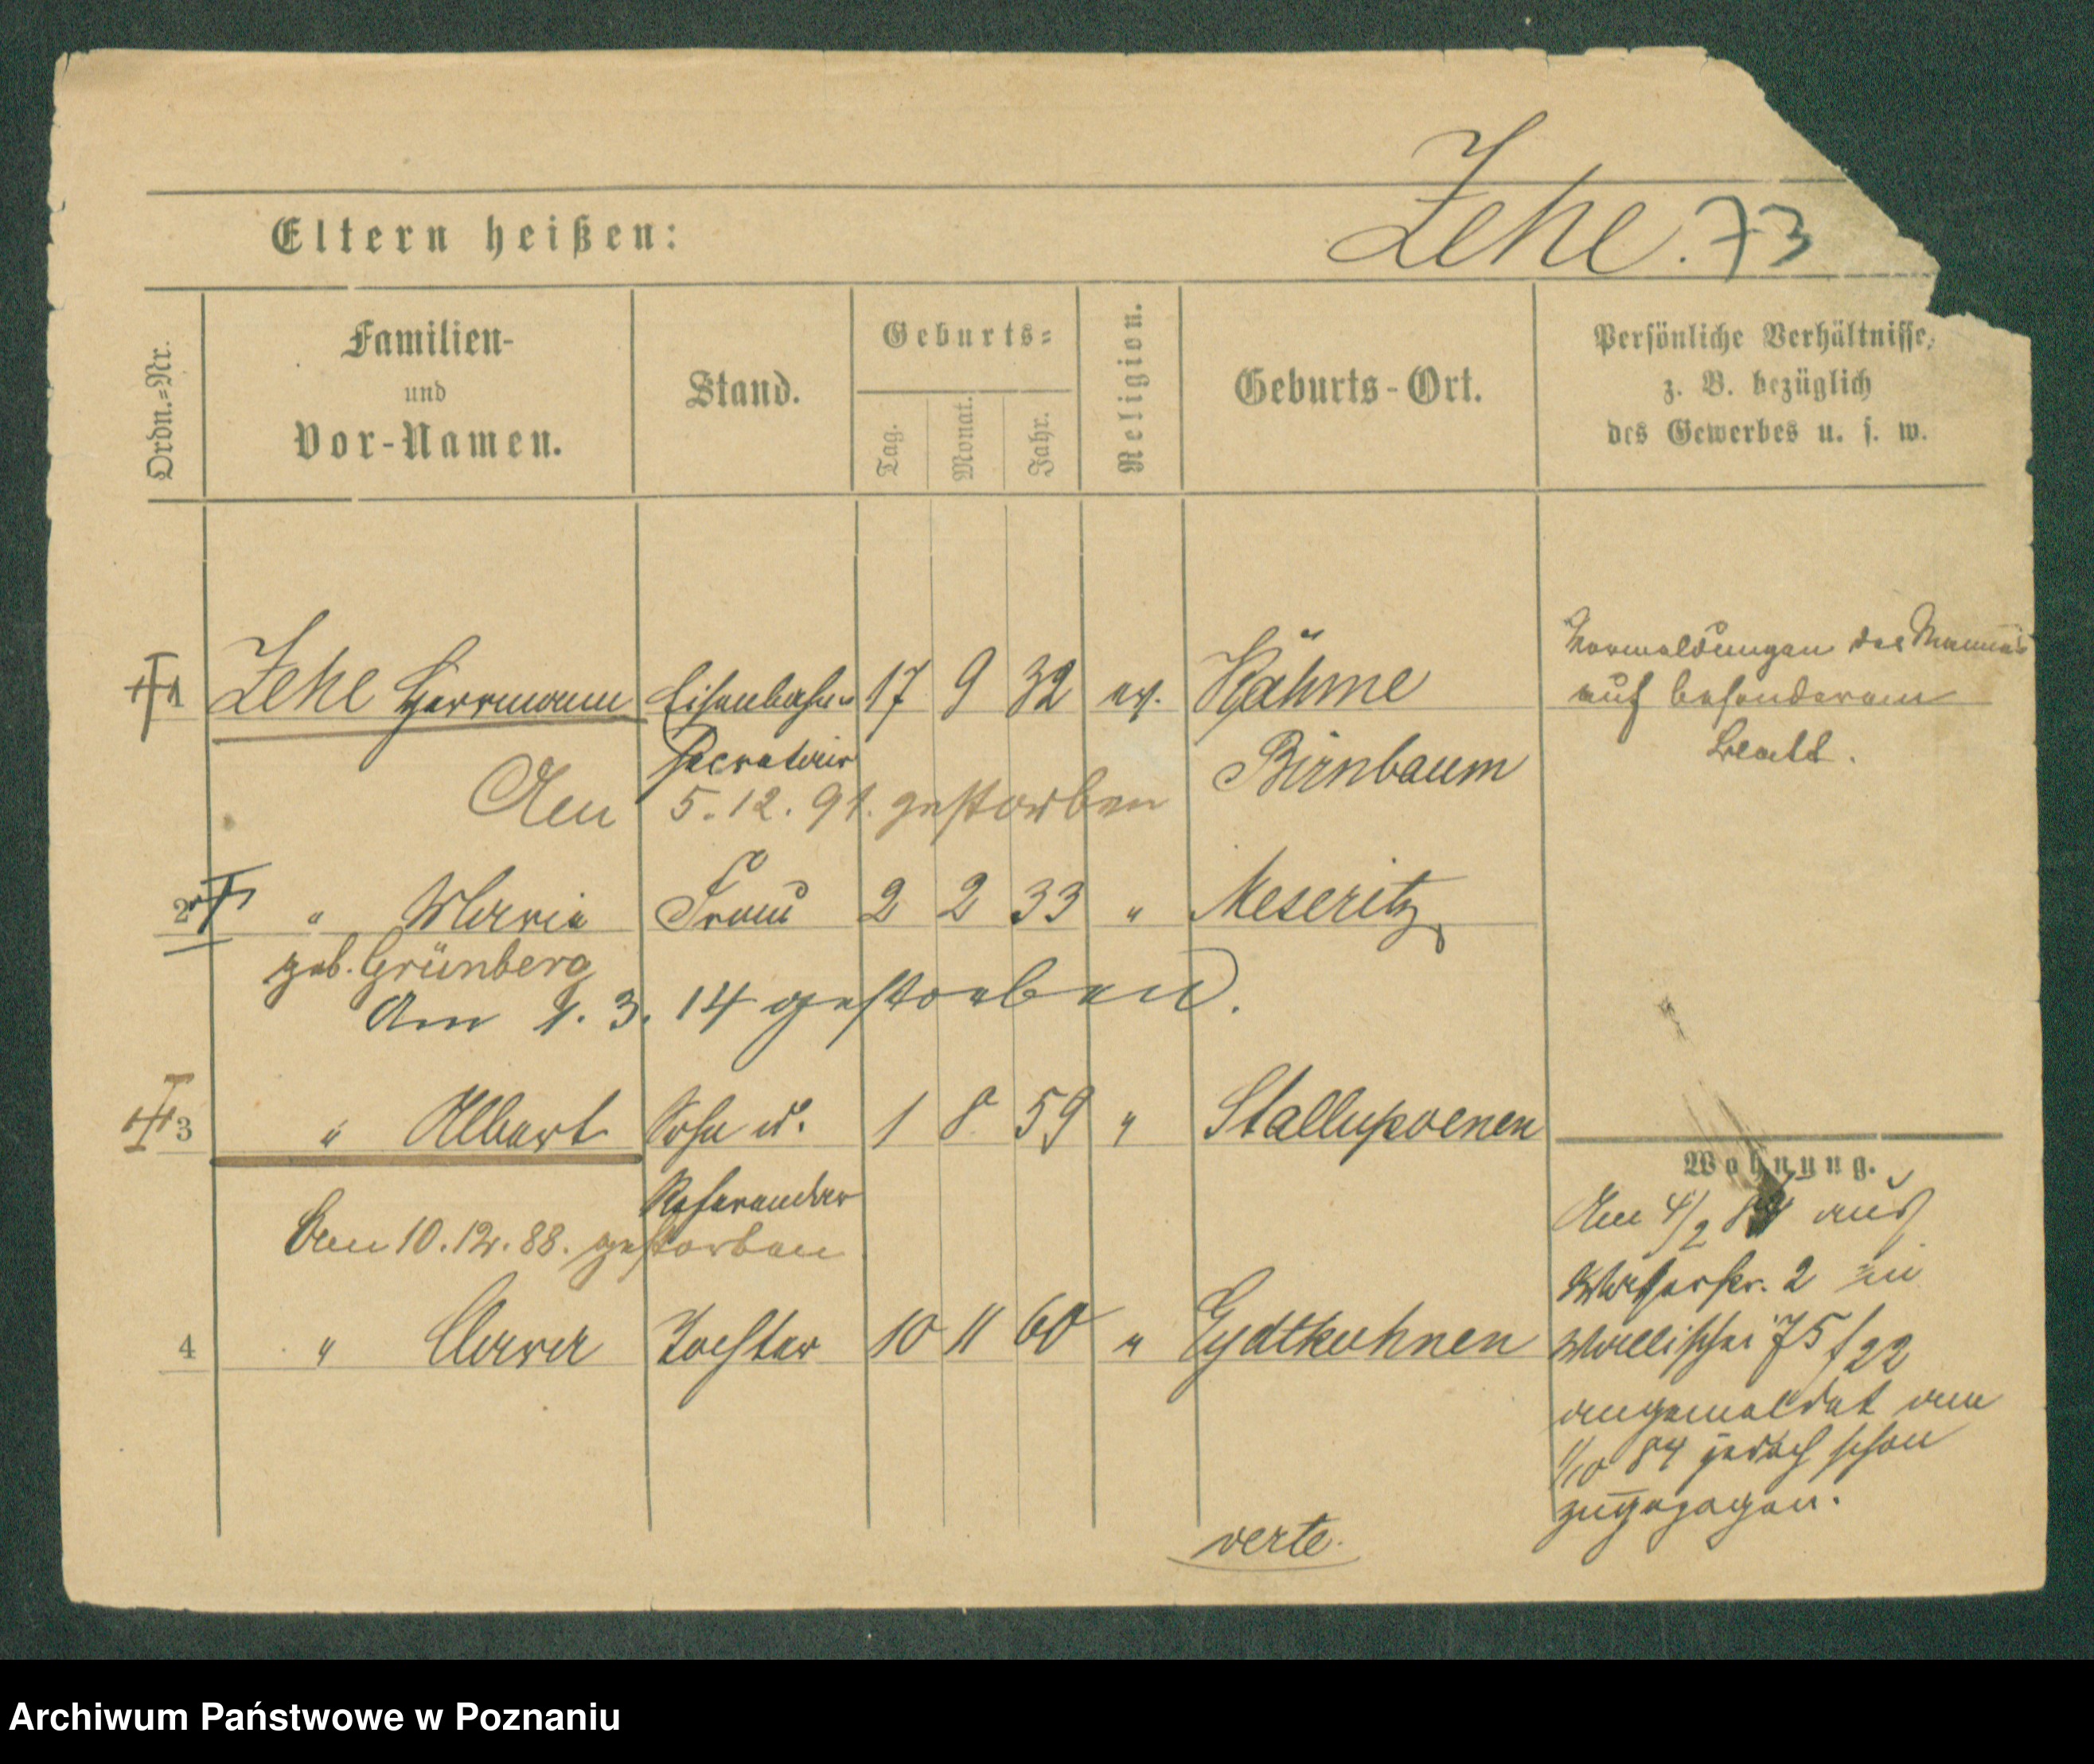 Zehe. 73
Eltern heißen:
Ordn.=Nr.
Familien-
und
Vor-Namen.
Stand.
Geburts=
Tag.
Monat.
Jahr.
Religion.
Geburts-Ort.
Persönliche Verhältnisse,
z. B. bezüglich
des Gewerbes u. s. w.
1 Zehe Herrmann Eisenbahn 17 9 32 ev. Kähme
Secretair Birnbaum
Am 5. 12. 91. gestorben
des Mannes
auf besonderem
Blatt.
2 " Maria Frau 2 2 33 " Meseritz
geb. Grünberg
Am 1. 3. 14 gestorben.
3 " Albert Sohn u. 1 8 59 " Stallupoenen
Referendar
Am 10. 12. 88. gestorben
4 " Clara Tochter 10 11 60 " Eydtkuhnen
Wohnung.
Am 4/2 84 aus
Wasserstr. 2 in
Wallischei 75/22
angemeldet am
1/10 84 jedoch schon
zugezogen.
verte.
Archiwum Państwowe w Poznaniu